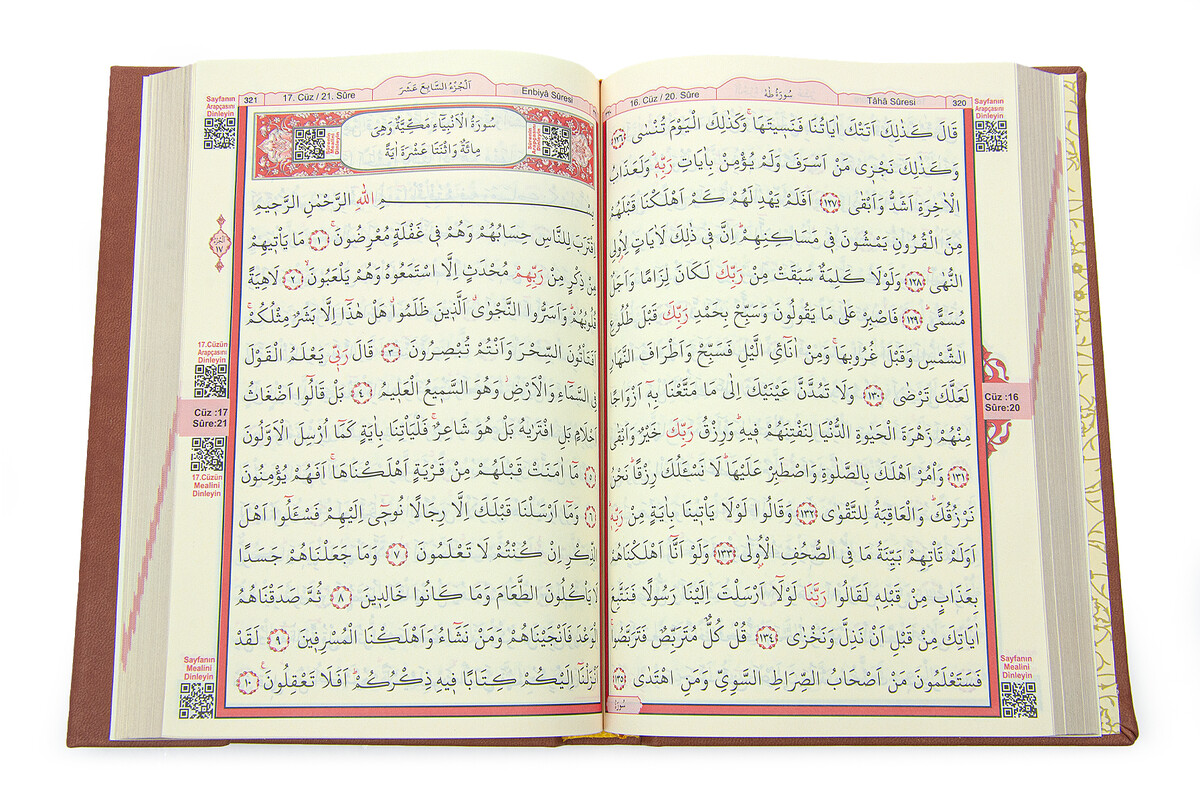 320 Tâhâ Sûresi سُورَةُ طٰهٰ 16. Cüz / 20. Sûre
Sayfanın
Arapçasını
Dinleyin
قَالَ كَذٰلِكَ اَتَتْكَ اٰيَاتُنَا فَنَسٖيتَهَاۚ وَكَذٰلِكَ الْيَوْمَ تُنْسٰى ﴿١٢٦﴾
وَكَذٰلِكَ نَجْزٖى مَنْ اَسْرَفَ وَلَمْ يُؤْمِنْ بِاٰيَاتِ رَبِّهٖؕ وَلَعَذَابُ
الْاٰخِرَةِ اَشَدُّ وَاَبْقٰى ﴿١٢٧﴾ اَفَلَمْ يَهْدِ لَهُمْ كَمْ اَهْلَكْنَا قَبْلَهُمْ
مِنَ الْقُرُونِ يَمْشُونَ فٖى مَسَاكِنِهِمْؕ اِنَّ فٖى ذٰلِكَ لَاٰيَاتٍ لِاُولِى
النُّهٰىۚ ﴿١٢٨﴾ وَلَوْلَا كَلِمَةٌ سَبَقَتْ مِنْ رَبِّكَ لَكَانَ لِزَامًا وَاَجَلٌ
مُسَمًّىؕ ﴿١٢٩﴾ فَاصْبِرْ عَلٰى مَا يَقُولُونَ وَسَبِّحْ بِحَمْدِ رَبِّكَ قَبْلَ طُلُوعِ
الشَّمْسِ وَقَبْلَ غُرُوبِهَاۚ وَمِنْ اٰنَٓائِ الَّيْلِ فَسَبِّحْ وَاَطْرَافَ النَّهَارِ
لَعَلَّكَ تَرْضٰى ﴿١٣٠﴾ وَلَا تَمُدَّنَّ عَيْنَيْكَ اِلٰى مَا مَتَّعْنَا بِهٖٓ اَزْوَاجًا
مِنْهُمْ زَهْرَةَ الْحَيٰوةِ الدُّنْيَا لِنَفْتِنَهُمْ فٖيهِؕ وَرِزْقُ رَبِّكَ خَيْرٌ وَاَبْقٰى
﴿١٣١﴾ وَأْمُرْ اَهْلَكَ بِالصَّلٰوةِ وَاصْطَبِرْ عَلَيْهَاؕ لَا نَسْـَٔلُكَ رِزْقًاؕ نَحْنُ
نَرْزُقُكَؕ وَالْعَاقِبَةُ لِلتَّقْوٰى ﴿١٣٢﴾ وَقَالُوا لَوْلَا يَاْتٖينَا بِاٰيَةٍ مِنْ رَبِّهٖؕ
اَوَلَمْ تَاْتِهِمْ بَيِّنَةُ مَا فِى الصُّحُفِ الْاُولٰى ﴿١٣٣﴾ وَلَوْ اَنَّٓا اَهْلَكْنَاهُمْ
بِعَذَابٍ مِنْ قَبْلِهٖ لَقَالُوا رَبَّنَا لَوْلَٓا اَرْسَلْتَ اِلَيْنَا رَسُولًا فَنَتَّبِعَ
اٰيَاتِكَ مِنْ قَبْلِ اَنْ نَذِلَّ وَنَخْزٰى ﴿١٣٤﴾ قُلْ كُلٌّ مُتَرَبِّصٌ فَتَرَبَّصُواۚ
فَسَتَعْلَمُونَ مَنْ اَصْحَابُ الصِّرَاطِ السَّوِىِّ وَمَنِ اهْتَدٰى ﴿١٣٥﴾
Cüz :16
Sûre:20
Sayfanın
Mealini
Dinleyin
سُورَةُ
Enbiyâ Sûresi اَلْجُزْءُ السَّابِعُ عَشَرَ 17. Cüz / 21. Sûre 321
Sayfanın
Arapçasını
Dinleyin
Sûrenin
Arapçasını
Dinleyin
سُورَةُ الْاَنْبِيَٓاءِ مَكِّيَّةٌ وَهِىَ
مِائَةٌ وَاثْنَتَا عَشْرَةَ اٰيَةً
Sûrenin
Mealini
Dinleyin
بِسْمِ اللّٰهِ الرَّحْمٰنِ الرَّحٖيمِ
اِقْتَرَبَ لِلنَّاسِ حِسَابُهُمْ وَهُمْ فٖى غَفْلَةٍ مُعْرِضُونَۚ ﴿١﴾ مَا يَاْتٖيهِمْ
مِنْ ذِكْرٍ مِنْ رَبِّهِمْ مُحْدَثٍ اِلَّا اسْتَمَعُوهُ وَهُمْ يَلْعَبُونَۙ ﴿٢﴾ لَاهِيَةً
قُلُوبُهُمْؕ وَاَسَرُّوا النَّجْوٰىۗ اَلَّذٖينَ ظَلَمُواۗ هَلْ هٰذَٓا اِلَّا بَشَرٌ مِثْلُكُمْۚ
اَفَتَاْتُونَ السِّحْرَ وَاَنْتُمْ تُبْصِرُونَ ﴿٣﴾ قَالَ رَبّٖى يَعْلَمُ الْقَوْلَ
فِى السَّمَٓاءِ وَالْاَرْضِؗ وَهُوَ السَّمٖيعُ الْعَلٖيمُ ﴿٤﴾ بَلْ قَالُٓوا اَضْغَاثُ
اَحْلَامٍ بَلِ افْتَرٰيهُ بَلْ هُوَ شَاعِرٌۚ فَلْيَاْتِنَا بِاٰيَةٍ كَمَٓا اُرْسِلَ الْاَوَّلُونَ
﴿٥﴾ مَٓا اٰمَنَتْ قَبْلَهُمْ مِنْ قَرْيَةٍ اَهْلَكْنَاهَاۚ اَفَهُمْ يُؤْمِنُونَ
﴿٦﴾ وَمَٓا اَرْسَلْنَا قَبْلَكَ اِلَّا رِجَالًا نُوحٖٓى اِلَيْهِمْ فَسْـَٔلُٓوا اَهْلَ
الذِّكْرِ اِنْ كُنْتُمْ لَا تَعْلَمُونَ ﴿٧﴾ وَمَا جَعَلْنَاهُمْ جَسَدًا
لَا يَاْكُلُونَ الطَّعَامَ وَمَا كَانُوا خَالِدٖينَ ﴿٨﴾ ثُمَّ صَدَقْنَاهُمُ
الْوَعْدَ فَاَنْجَيْنَاهُمْ وَمَنْ نَشَٓاءُ وَاَهْلَكْنَا الْمُسْرِفٖينَ ﴿٩﴾ لَقَدْ
اَنْزَلْنَٓا اِلَيْكُمْ كِتَابًا فٖيهِ ذِكْرُكُمْؕ اَفَلَا تَعْقِلُونَۚ ﴿١٠﴾
اَلْجُزْءُ
١٧
17.Cüzün
Arapçasını
Dinleyin
Cüz :17
Sûre:21
17.Cüzün
Mealini
Dinleyin
Sayfanın
Mealini
Dinleyin